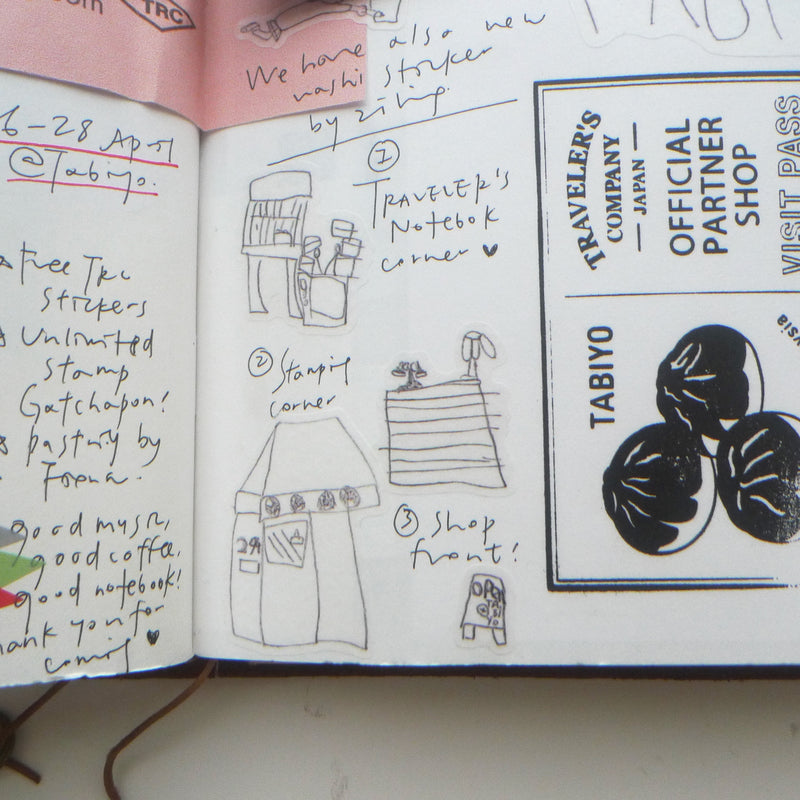 com
TRC
6-28 April
@Tabiyo.
Free TRC
Stickers
Unlimited
Stamp
Gatchapon!
pastry by
good music,
good coffee,
good notebook!
thank you for
coming ♥
We have also new
washi sticker
by ziing.
①
TRAVELER'S
Notebok
corner ♥
② Stamping
corner
29
③ Shop
front!
OPEN
TABIYO
TRAVELER'S
COMPANY
JAPAN
OFFICIAL
PARTNER
SHOP
VISIT PASS
TABIYO
ysia